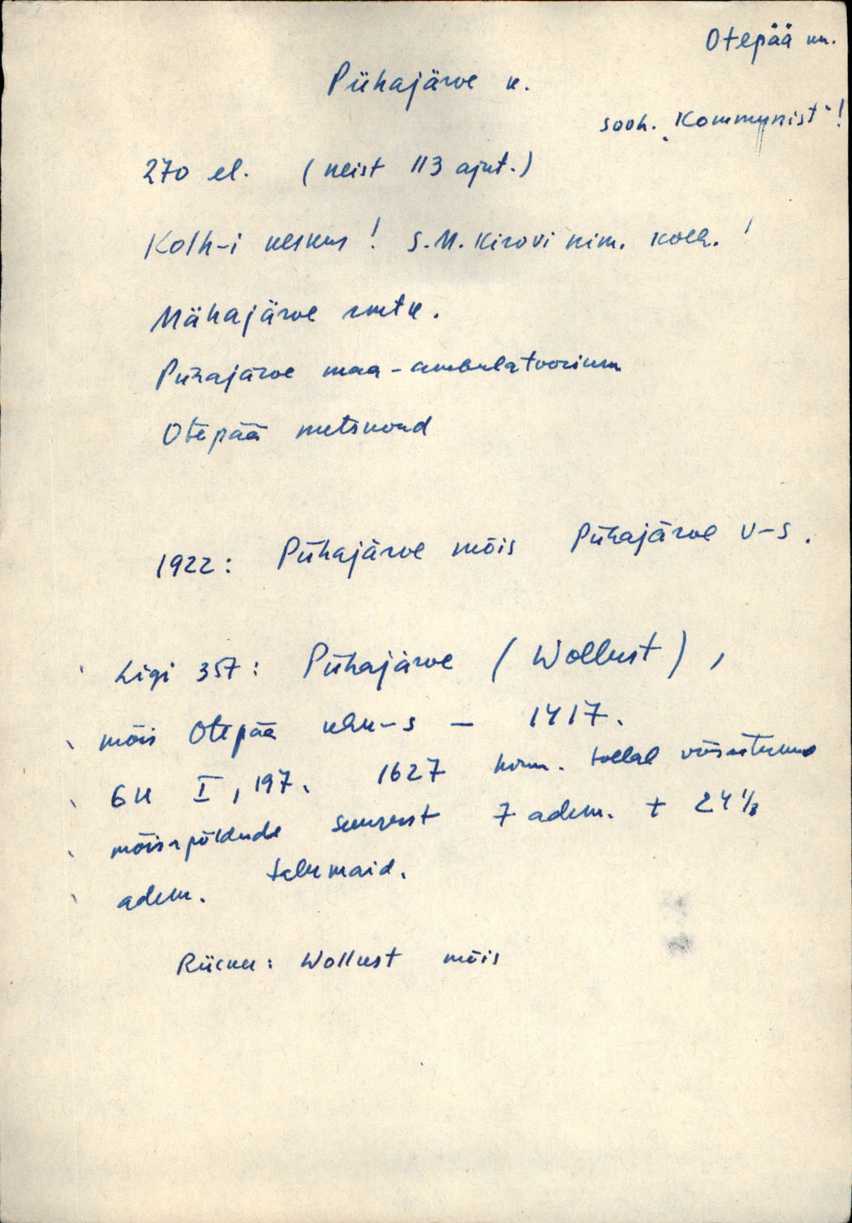 Otepää kn.
Pühajärve k.
sovh. "Kommunist"!
270 el. (neist 113 ajut.)
Kolh-i keskus! S.M. Kirovi nim. kolh.!
Mähajärve rmtk.
Pühajärve maa-ambulatoorium
Otepää metskond
1922: Pühajärve mõis Pühajärve v-s.
Ligi 357: Pühajärve (Wollust),
mõis Otepää khk-s – 1417.
GU I, 197. 1627 tollal võsastunud
mõisapõldude suurust 7 adrm. + 24 1/8
adrm. talumaid.
Rücker: Wollust mõis